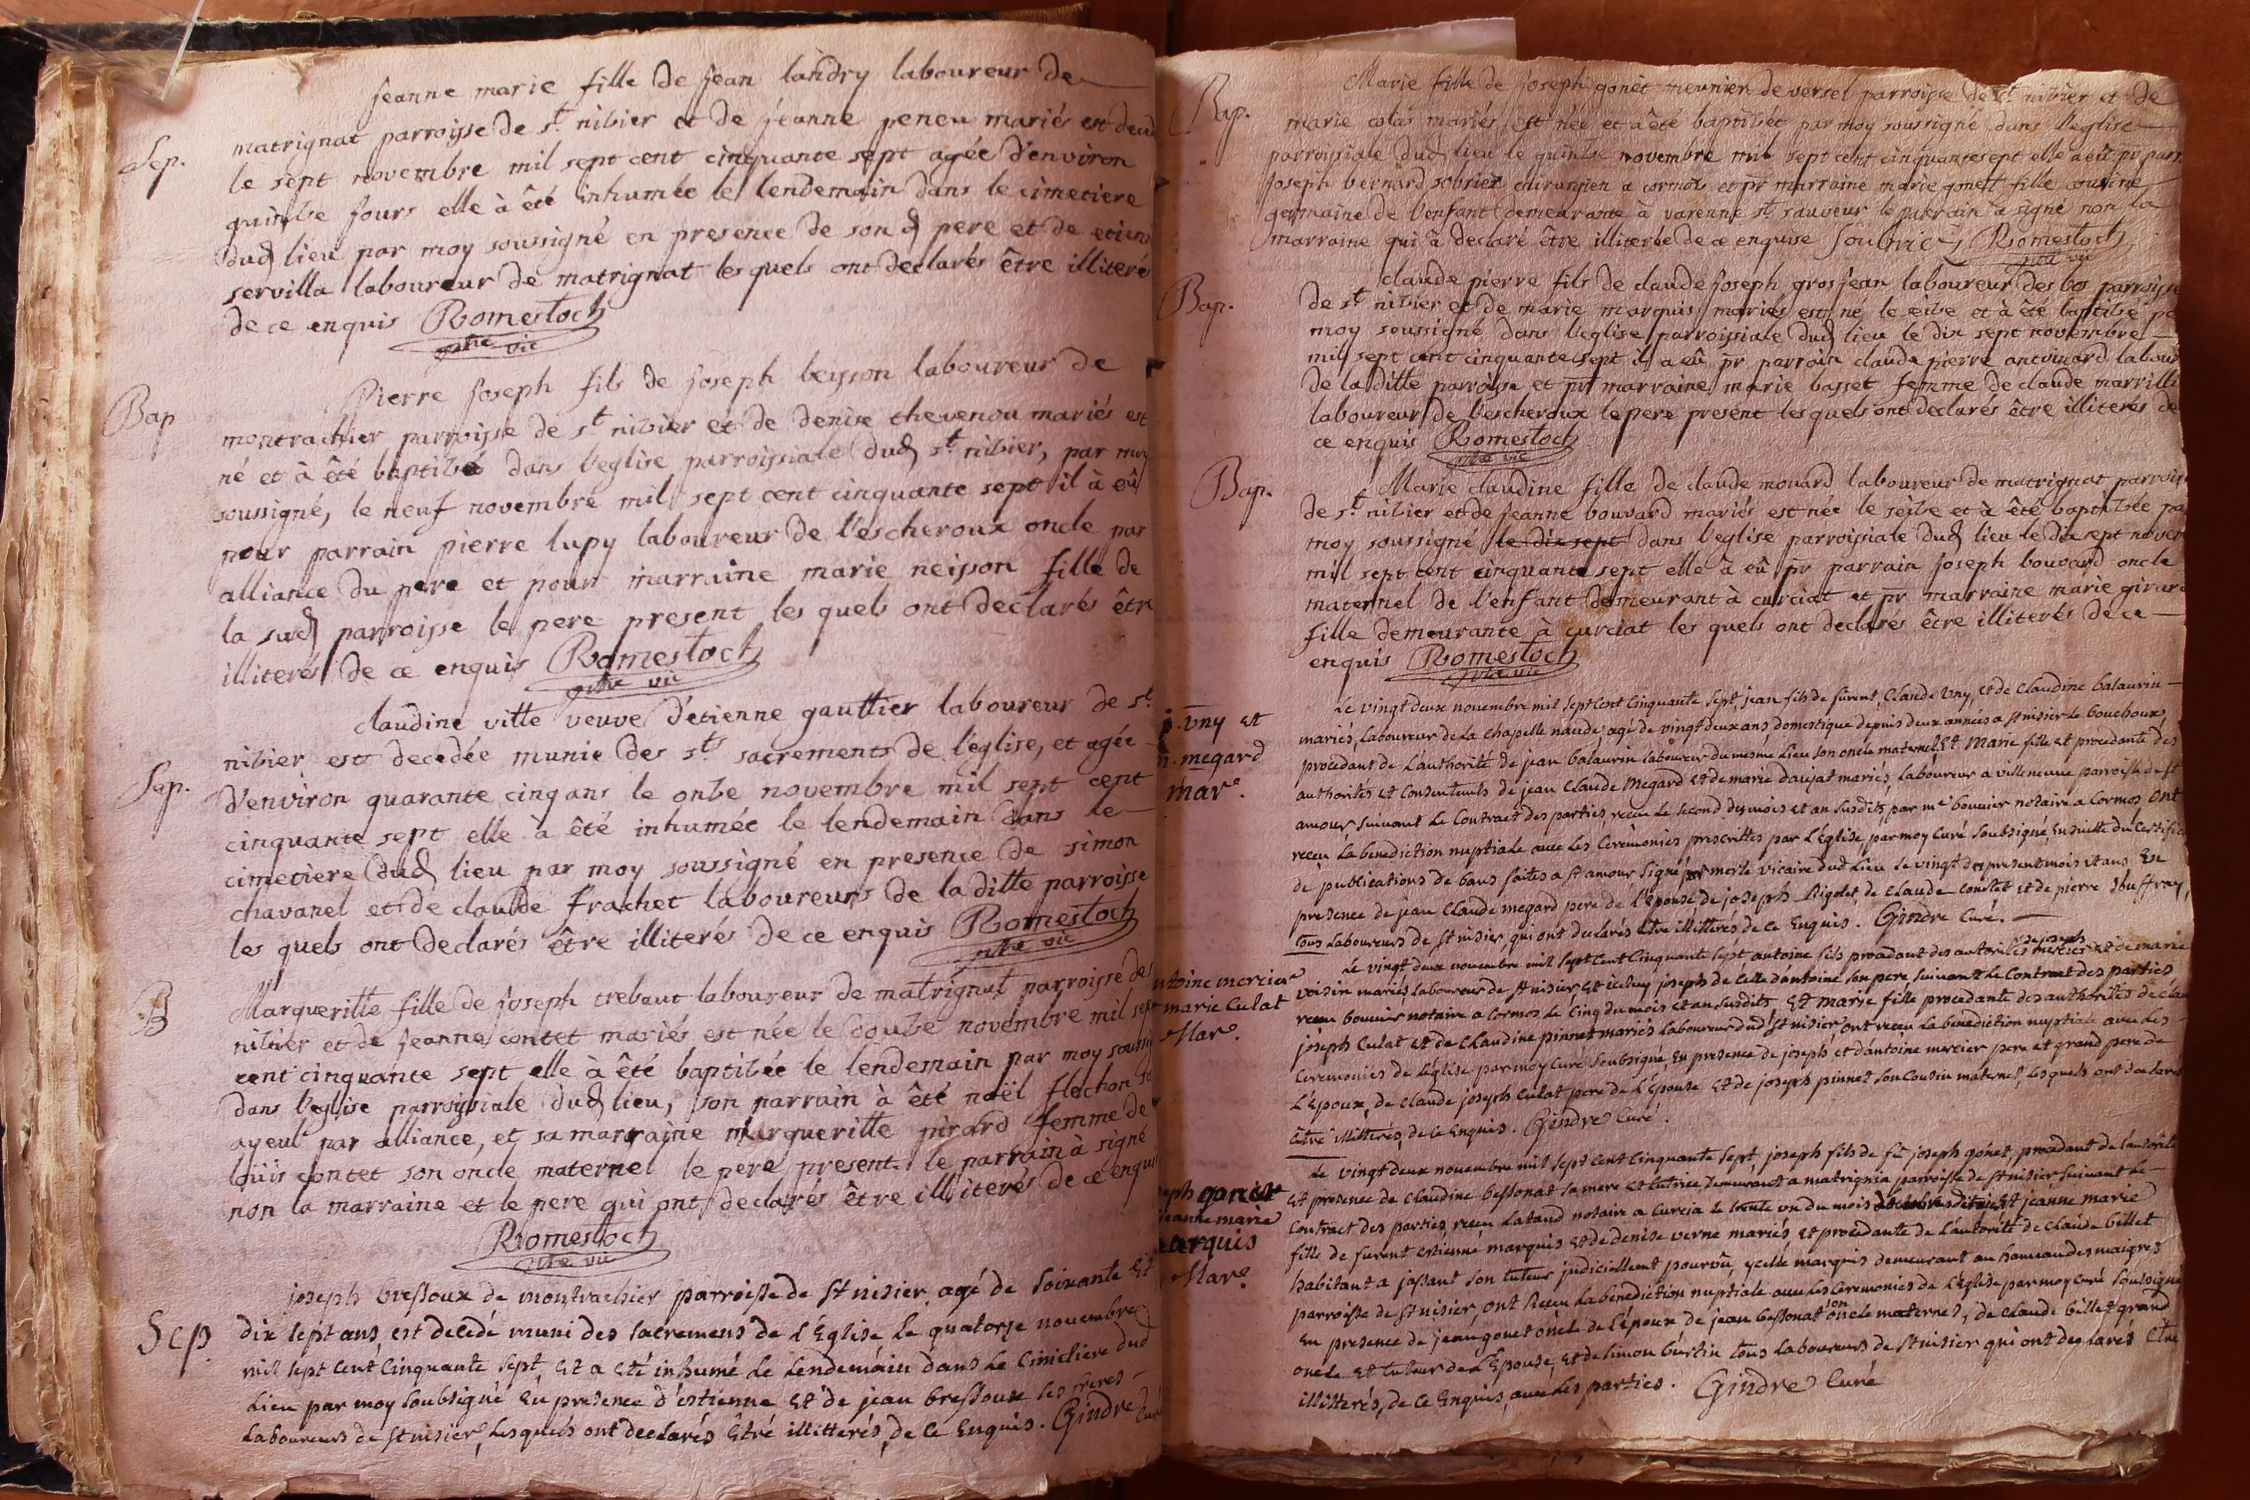 jeanne marie fille de jean landry laboureur de
Sep. matrignat parroisse de st nibier et de jeanne peneu mariés est
le sept novembre mil sept cent cinquante sept agée d'environ
quinbse jours elle à été inhumée le lendemain dans le cimetiere
dud lieu par moy soussigné en presence de son d pere et de
servilla laboureur de matrignat les quels ont declarés être illiterés
de ce enquis Romestoch
ptre vic
Pierre joseph fils de joseph beysson laboureur de
Bap montrachier parroisse de st nibier et de denise thevenou mariés est
né et à été baptibsé dans l'eglise parroissiale dud st nibier, par moy
soussigné, le neuf novembre mil sept cent cinquante sept il à eû
pour parrain pierre lupy laboureur de l'escheroux oncle par
alliance du pere et pour marraine marie neisson fille de
la sud parroisse le pere present les quels ont declarés être
illiterés de ce enquis Romestoch
ptre vic
claudine ville veuve d'etienne gauttier laboureur de st
nibier est decedée munie des sts sacrements de l'eglise, et agée
Sep. d'environ quarante cinq ans le onbe novembre mil sept cent
cinquante sept elle à été inhumée le lendemain dans le
cimetiere dud lieu par moy soussigné en presence de simon
chavanel et de claude frachet laboureurs de la ditte parroisse
les quels ont declarés être illiterés de ce enquis Romestoch
ptre vic
B Margueritte fille de joseph trebaut laboureur de matrignat parroisse de
nibier et de jeanne contet mariés est née le doube novembre mil sept
cent cinquante sept elle à été baptibée le lendemain par moy
dans l'eglise parroissiale dud lieu, son parrain à été noël flochon
ayeul par alliance, et sa marraine margueritte pirard femme de
louis contet son oncle maternel le pere present le parrain à signé
non la marraine et le pere qui ont declarés être illiterés de ce enquis
Romestoch
ptre vic
joseph bressoux de montrachier parroisse de st nisier agé de soixante et
Sep. dix sept ans, est decedé muni des sacremens de l'Eglise le quatorze novembre
mil sept cent cinquante sept, et a eté inhumé le lendemain dans le cimetiere dud
lieu par moy soubsigné en presence d'estienne et de jean bressoux ses freres
laboureurs de st nisier, lesquels ont declarés être illitterés, de ce enquis. Gindre curé
Bap. Marie fille de joseph gonet meunier de versel parroisse de st nibier et de
marie colas mariés, est née et à été baptibée par moy soussigné dans l'eglise
parroissiale dud lieu le quinbse novembre mil sept cent cinquante sept elle a eû pr
joseph bernard sobrier chirurgien a cormos et pr marraine marie gonet fille cousine
germaine de l'enfant demeurante à varenne st sauveur le parrain à signé non la
marraine qui à declaré être illiterée de ce enquise Romestoch
ptre vic
claude pierre fils de claude joseph grosjean laboureur des bos parroisse
Bap. de st nibier et de marie marquis mariés est né le seibe et à été baptibé
moy soussigné dans l'eglise parroissiale dud lieu le dix sept novembre
mil sept cent cinquante sept il a eû pr parrain claude pierre antoinard
de la ditte parroisse et pr marraine marie basset femme de claude
laboureur de l'escheroux le pere present les quels ont declarés être illiterés de
ce enquis Romestoch
ptre vic
Bap. Marie claudine fille de claude monard laboureur de matrignat parroisse
de st nibier et de jeanne bouvard mariés est née le seibe et à été baptibée
moy soussigné le dix sept dans l'eglise parroissiale dud lieu le dix sept
mil sept cent cinquante sept elle à eû pr parrain joseph bouvard oncle
maternel de l'enfant demeurant à curciat et pr marraine marie
fille demeurante à curciat les quels ont declarés être illiterés de ce
enquis Romestoch
ptre vic
Le vingt deux novembre mil sept cent cinquante sept, jean fils de furent, Claude Vny, et de Claudine balaurin
j. Vny et mariés, laboureur de la chapelle naude, agé de vingt deux ans domestique depuis deux années a st nisier le bouchoux,
megard procedant de l'authorité de jean balaurin laboureur du mesme lieu son oncle maternel, Et Marie fille et procedante des
mar.e authorités et consentements de jean Claude Megard et de marie daujat mariés, laboureur a villeneuve parroisse de st
amour suivant le contract des parties receu le second des mois et an susdits, par me bouvier notaire a Cormos ont
receu la benediction nuptiale avec les ceremonies prescrittes par l'Eglise, par moy Curé soubsigné, Ensuitte du
de publications de bans faites a st amour signé merle vicaire dud lieu le vingt des present mois et ans En
presence de jean Claude megard pere de l'épouse, de joseph Rigolet, de Claude et de pierre
tous laboureurs de st nisier, qui ont declarés être illitterés de ce enquis. Gindre Curé.
Le vingt deux novembre mil sept cent cinquante sept antoine fils procedant des autorités de joseph mercier et de marie
antoine mercier voisin mariés laboureur de st nisier Et iceluy joseph de celle d'antoine son pere, suivant le Contract des parties
marie Culat receu bouvier notaire a Cormos le cinq du mois et an susdits, Et marie fille procedante des authorités de
Mar.e joseph Culat et de Claudine pinnet mariés laboureur dud st nisier ont receu la benediction nuptiale avec les
ceremonies de l'église par moy curé soubsigné, En presence de joseph et d'antoine mercier pere et grand pere de
l'Epoux, de Claude joseph Culat pere de l'Epouse et de joseph pinnet son Cousin maternel, lesquels ont declarés
être illitterés, de ce enquis. Gindre Curé.
Le vingt deux novembre mil sept cent cinquante sept joseph fils de fû joseph gonet, procedant de l'autorité
joseph gonet Et presence de Claudine bessonat sa mere et tutrice demeurant a matrignia parroisse de st nisier suivant le
jeanne marie Contract des parties, receu notaire a Curcia le trente un du mois Et jeanne marie
marquis fille de furent estienne marquis et de denise verne mariés, et procedante de l'autorité de Claude billet
Mar.e habitant a son tuteur judiciellement pourvû, ycelle marquis demeurant au hameau des maigres
parroisse de st nisier, ont Receu la benediction nuptiale avec les ceremonies de l'Eglise par moy curé soussigné
en presence de jean gonet oncle de l'époux de jean bessonat oncle maternel, de Claude billet grand
oncle et tuteur de l'Epouse, et de simon burtin tous laboureurs de st nisier qui ont declarés être
illitterés, de ce enquis, avec les parties. Gindre Curé